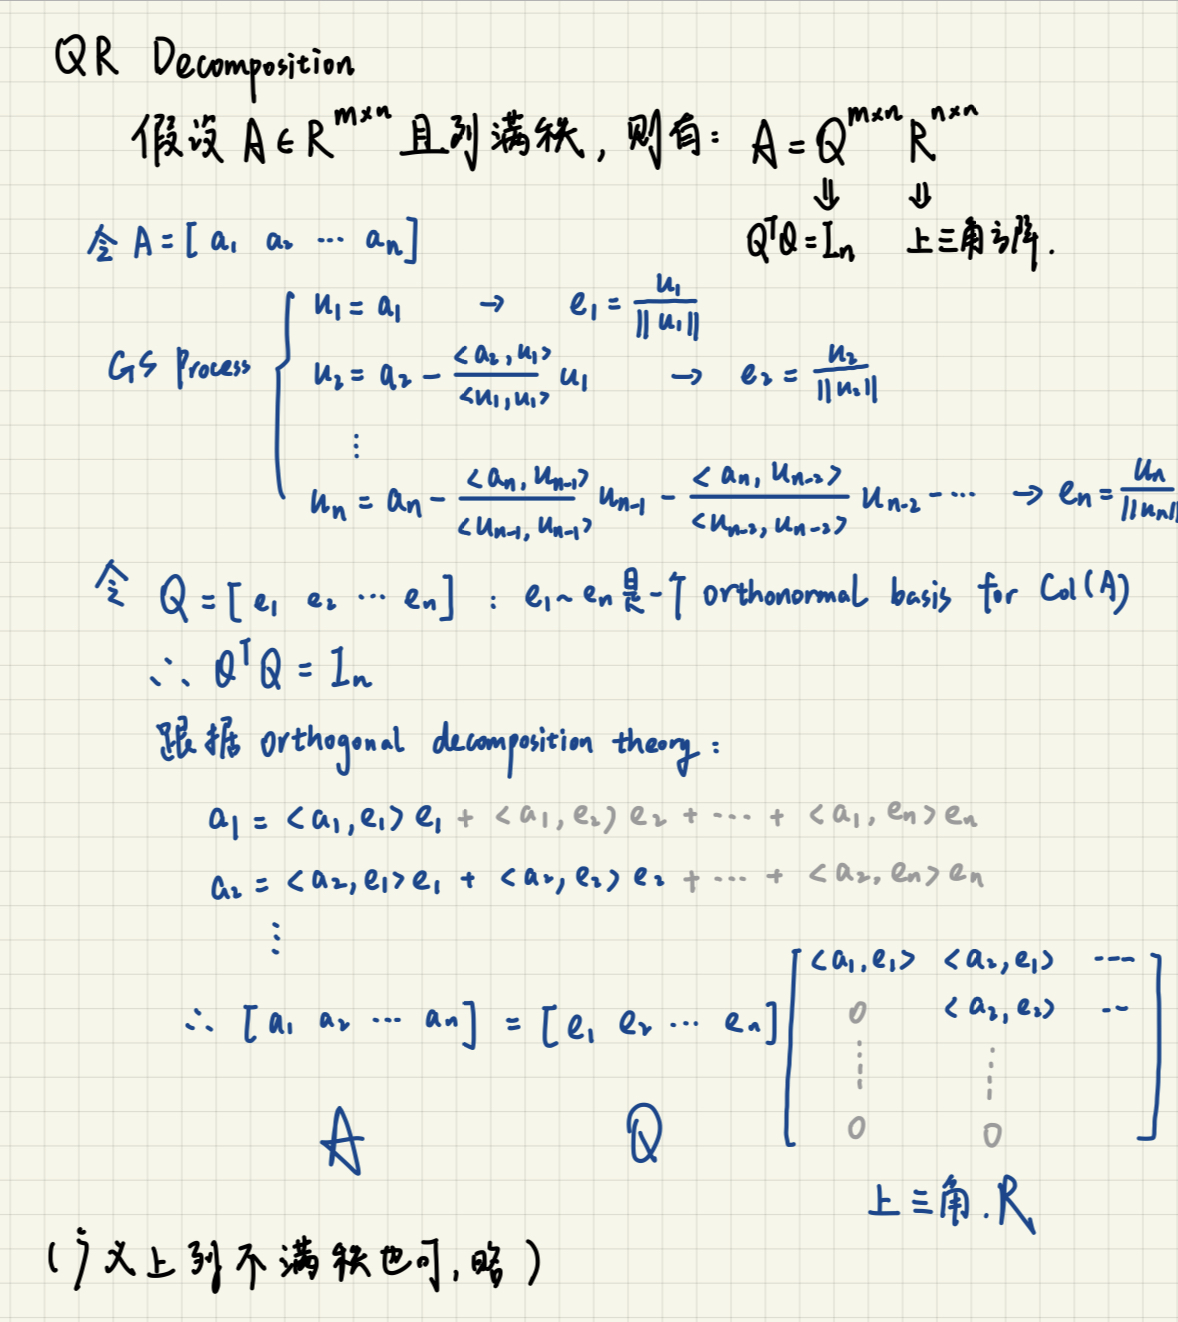 QR Decomposition
假设 A∈R^{m×n} 且列满秩, 则有: A = Q^{m×n} R^{n×n}
⇓ ⇓
Q^T Q = I_n 上三角方阵.
令 A = [ a_1 a_2 ⋯ a_n ]
GS Process
u_1 = a_1 → e_1 = u_1 / ||u_1||
u_2 = a_2 − <a_2, u_1> / <u_1, u_1> u_1 → e_2 = u_2 / ||u_2||
⋮
u_n = a_n − <a_n, u_{n-1}> / <u_{n-1}, u_{n-1}> u_{n-1} − <a_n, u_{n-2}> / <u_{n-2}, u_{n-2}> u_{n-2} − ⋯ → e_n = u_n / ||u_n||
令 Q = [ e_1 e_2 ⋯ e_n ] : e_1 ~ e_n 是一个 orthonormal basis for Col(A)
∴ Q^T Q = I_n
跟据 orthogonal decomposition theory:
a_1 = <a_1, e_1> e_1 + <a_1, e_2> e_2 + ⋯ + <a_1, e_n> e_n
a_2 = <a_2, e_1> e_1 + <a_2, e_2> e_2 + ⋯ + <a_2, e_n> e_n
⋮
∴ [ a_1 a_2 ⋯ a_n ] = [ e_1 e_2 ⋯ e_n ]
<a_1, e_1> <a_2, e_1> ⋯
0 <a_2, e_2> ⋯
⋮ ⋮
0 0
A Q
上三角. R
(广义上列不满秩也可, 略)